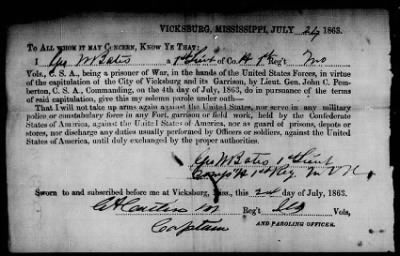 VICKSBURG, MISSISSIPPI, JULY 1863.
TO ALL WHOM IT MAY CONCERN, KNOW YE THAT:
I Geo W Bates a 1st Lieut of Co. H 1st Reg't Mo
Vols., C. S. A., being a prisoner of War, in the hands of the United States Forces, in virtue
of the capitulation of the City of Vicksburg and its Garrison, by Lieut. Gen. John C. Pem-
berton, C. S. A., Commanding, on the 4th day of July, 1863, do in pursuance of the terms
of said capitulation, give this my solemn parole under oath—
That I will not take up arms again against the United States, nor serve in any military
police or constabulary force in any Fort, garrison or field work, held by the Confederate
States of America, against the United States of America, nor as guard of prisons, depots or
stores, nor discharge any duties usually performed by Officers or soldiers, against the United
States of America, until duly exchanged by the proper authorities.
Geo W Bates 1st Lieut
Comp H 1st Reg
Sworn to and subscribed before me at Vicksburg, Miss., this day of July, 1863.
Reg't Ills Vols,
Captain AND PAROLING OFFICER.